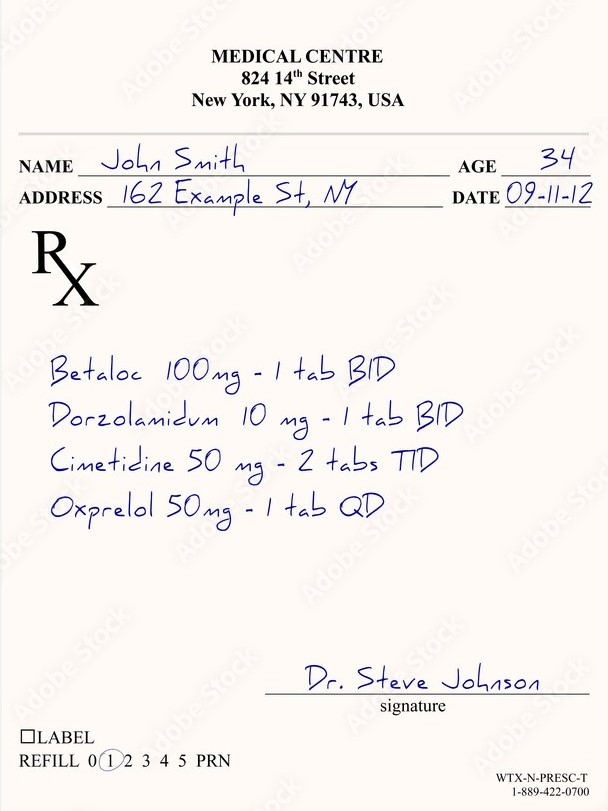 MEDICAL CENTRE
824 14th Street
New York, NY 91743, USA
NAME John Smith AGE 34
ADDRESS 162 Example St, NY DATE 09-11-12
Rx
Betaloc 100mg - 1 tab BID
Dorzolamidum 10 mg - 1 tab BID
Cimetidine 50 mg - 2 tabs TID
Oxprelol 50mg - 1 tab QD
Dr. Steve Johnson
signature
LABEL
REFILL 0 1 2 3 4 5 PRN
WTX-N-PRESC-T
1-889-422-0700
Adobe Stock